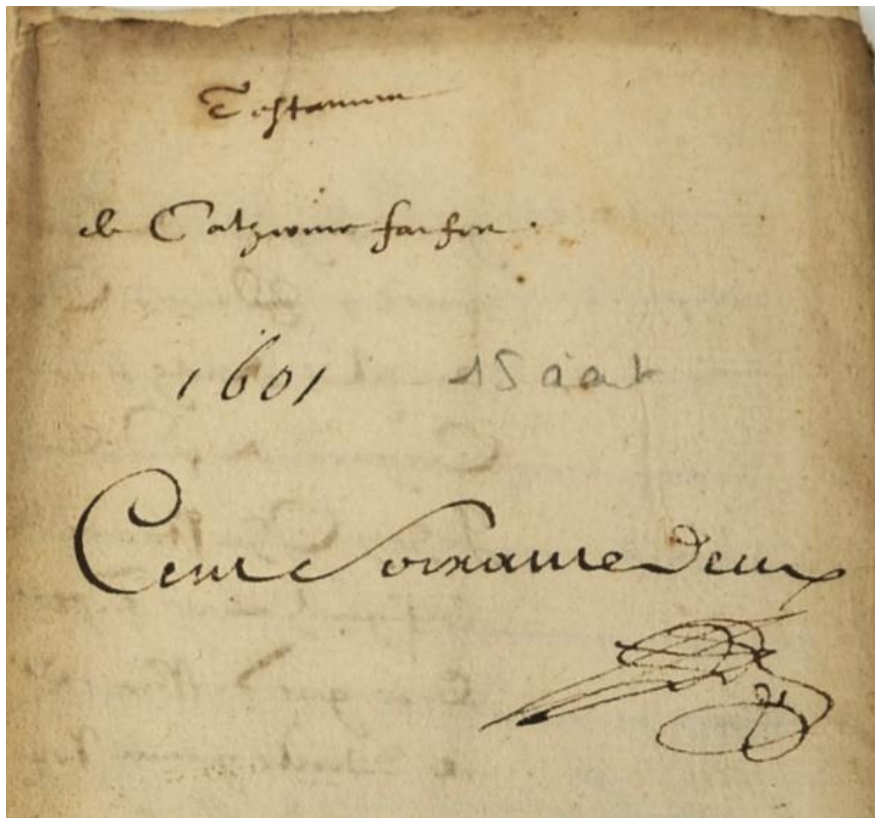 Testament
de Catherine
1601 15 aat
Cent Soixante Deux